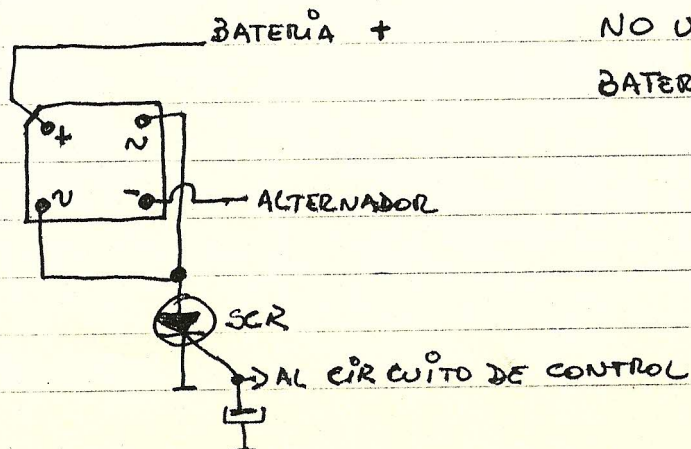 BATERIA +
NO
BATER
+
~
~
-
ALTERNADOR
SCR
AL CIRCUITO DE CONTROL